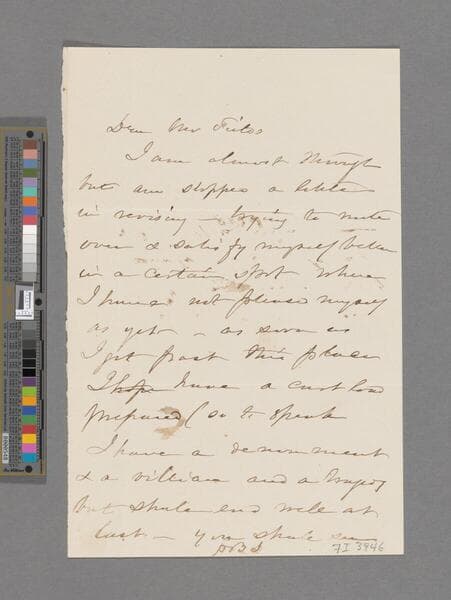 Dear Mr Fields
I am almost through
but am stopped a little
in revising – trying to make
over & satisfy myself better
in a certain spot where
I have not pleased myself
as yet – as soon as
I get past this place
I hope have a cart load
prepared (so to speak
I have a denouement
& a villian and a
but shall end well at
last – you shall see
HBS
7I 3946